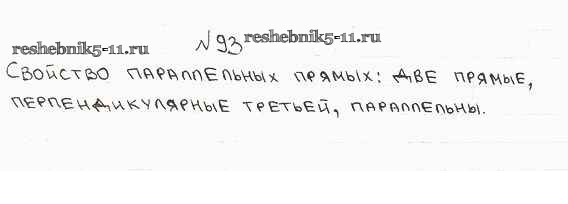 reshebnik5-11.ru №93 reshebnik5-11.ru
Свойство параллельных прямых: две прямые,
перпендикулярные третьей, параллельны.